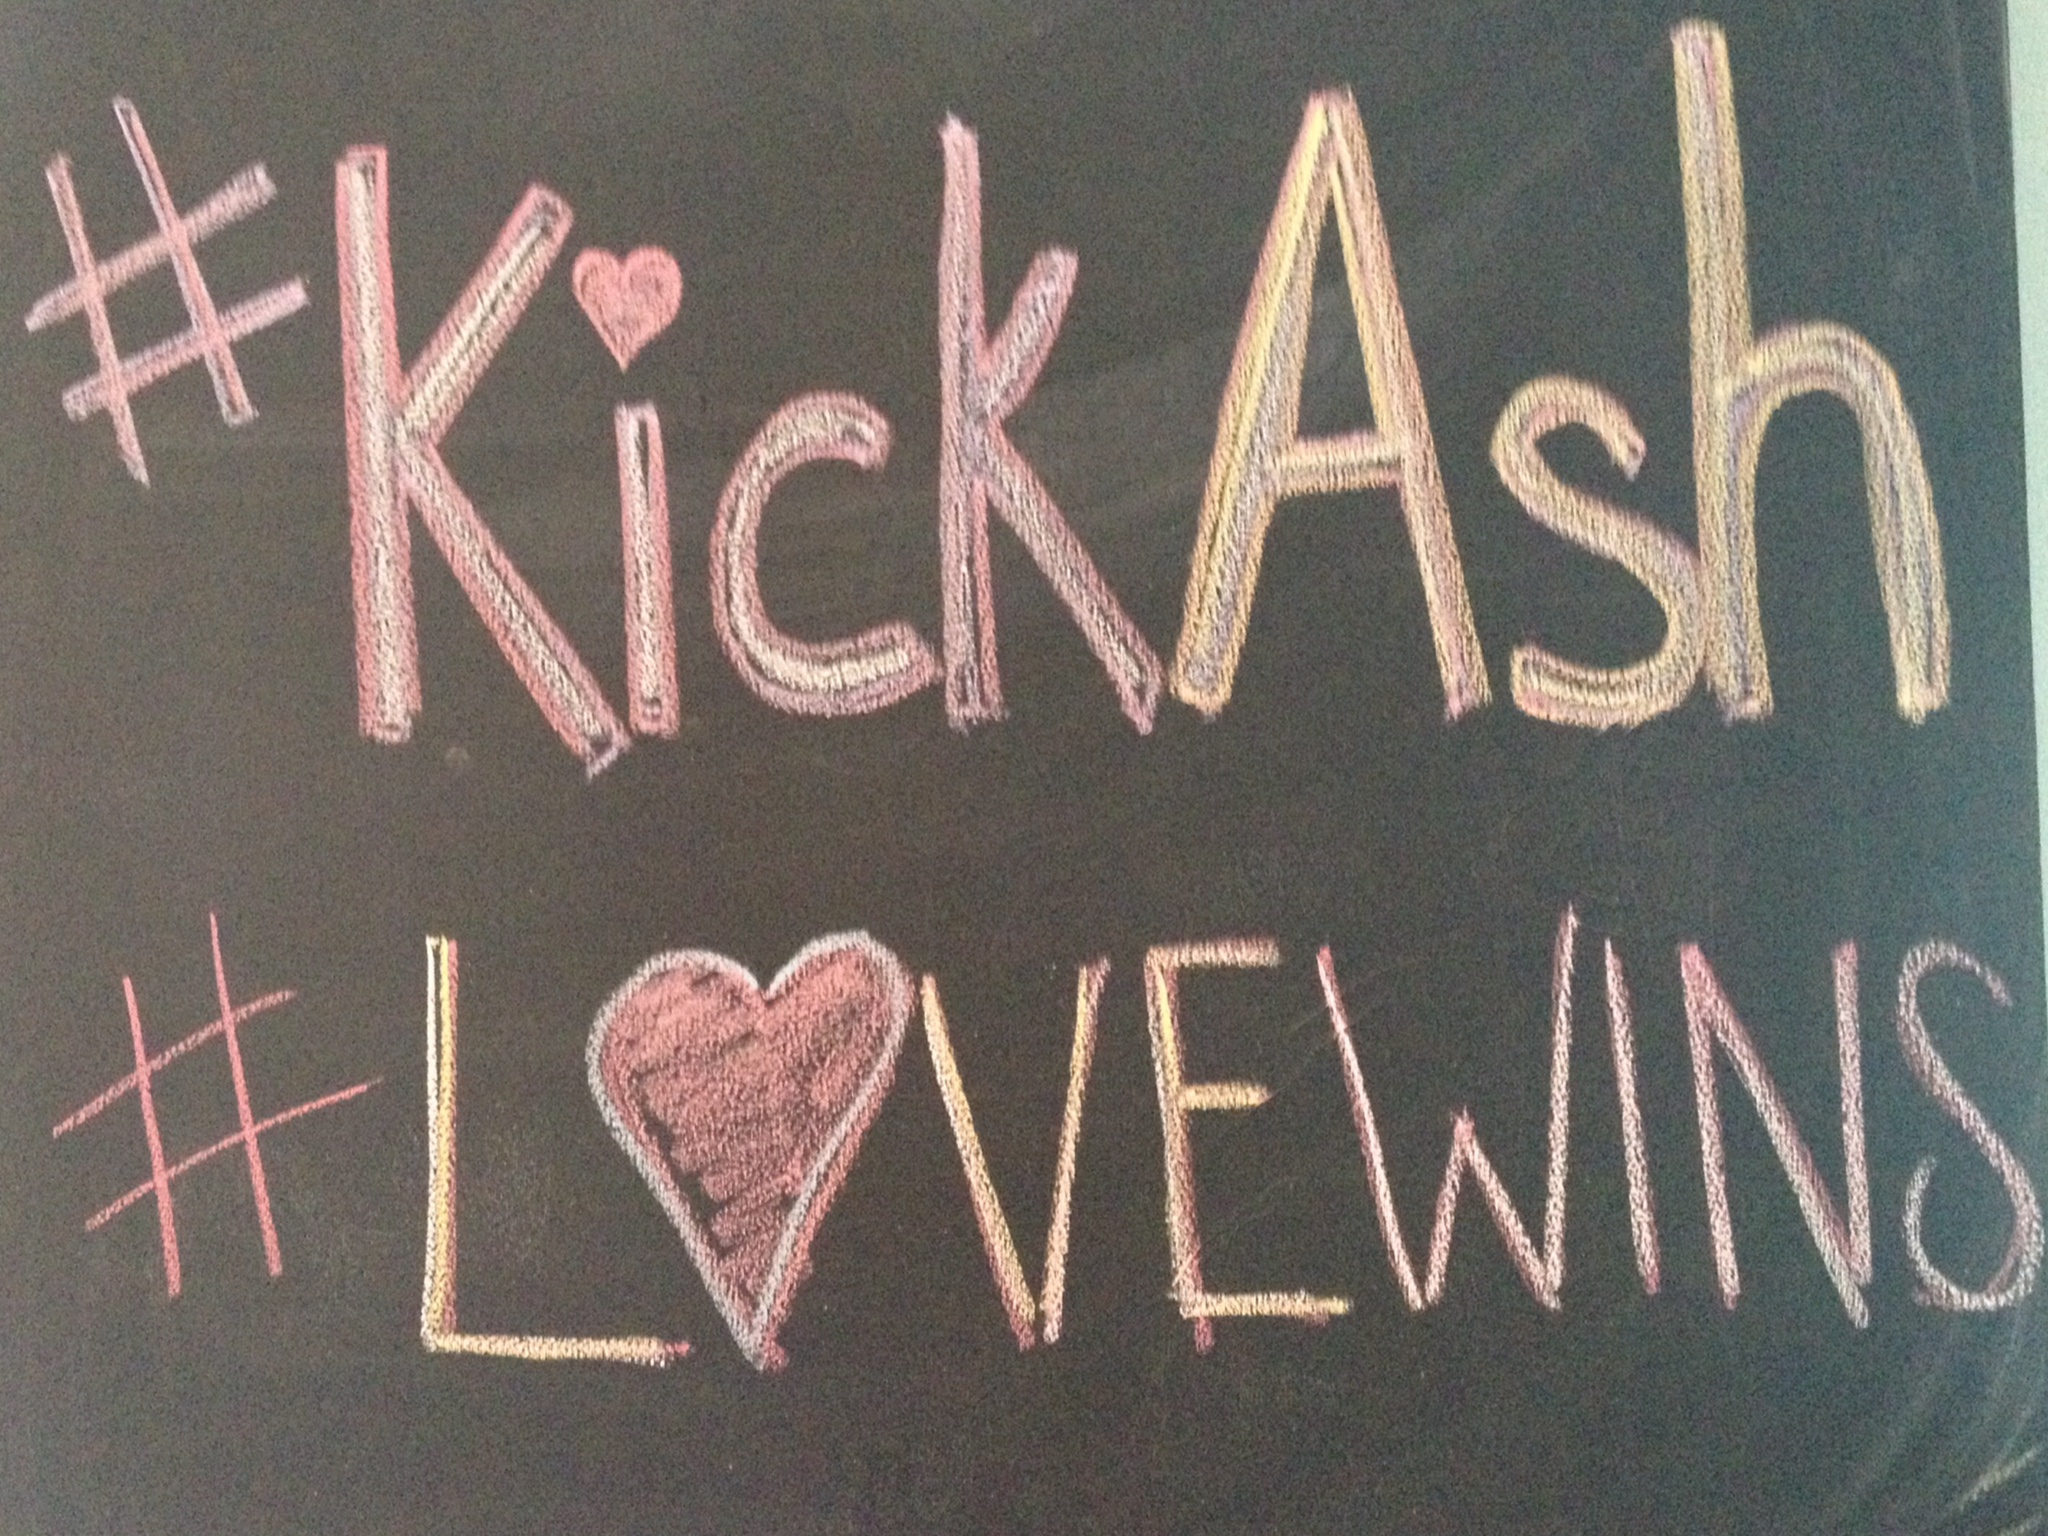 #KickAsh
#LOVEWINS